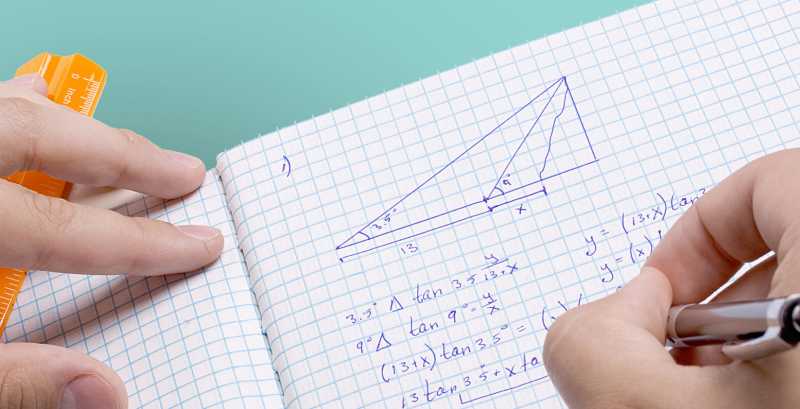 1)
3.5°
9°
x
13
3.5° Δ tan 3.5 y/13+x
9° Δ tan 9° = y/x
(13+x) tan 3.5° = (x)
13 tan 3.5° + x tan
y = (13+x) tan 3
y = (x)
0 inch